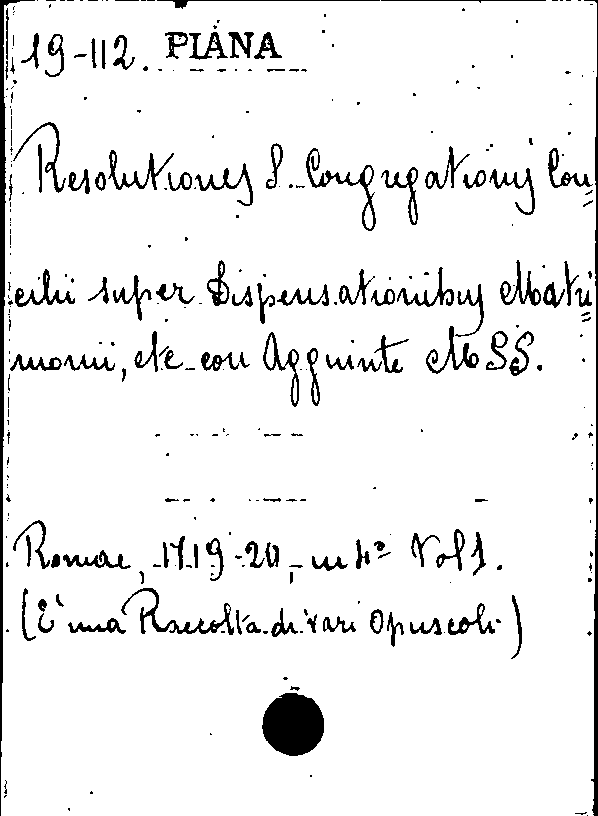 19-112. PIANA
Resolutiones S. Congregationis Con=
cilii super Dispensationibus Matri=
monii, etc con Aggiunte MSS.
Romae, 1719-20, in 4º Vol 1.
(E' una Raccolta di vari Opuscoli)